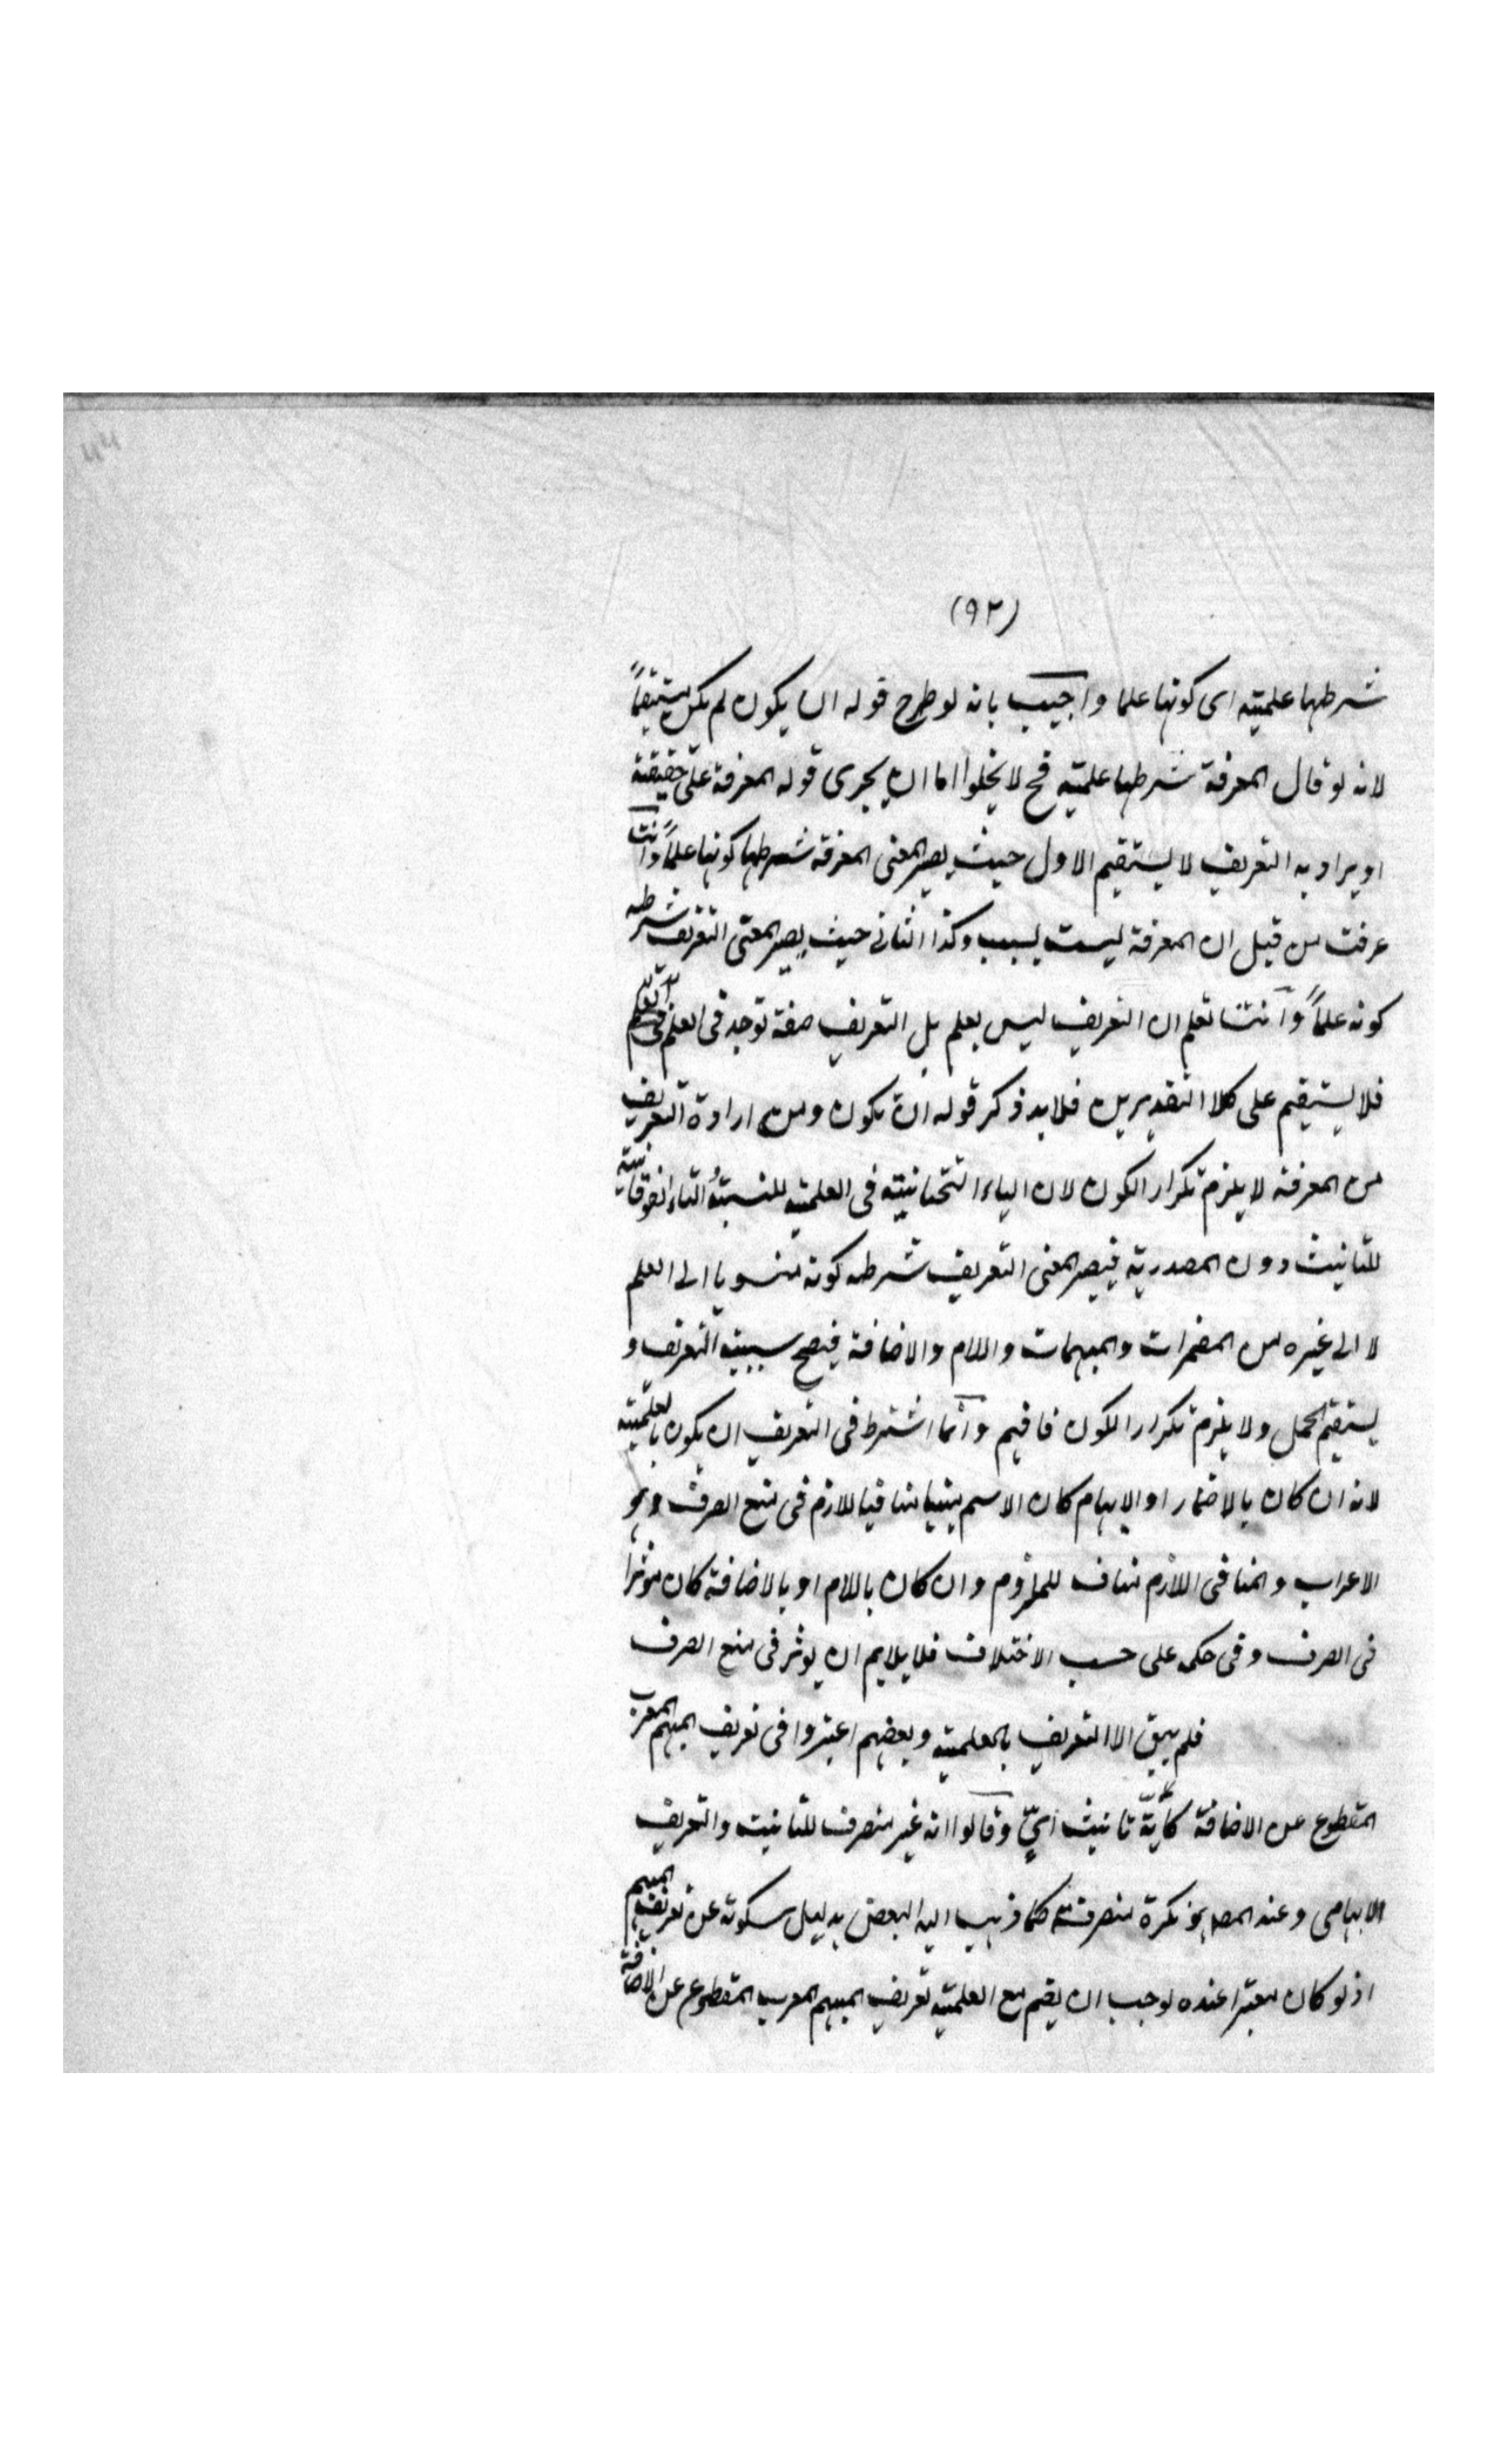 (٩٢)
شرطها علمیته ای کونها علما واجیب بانه لو طرح قوله ان یکون لم یکن مستقیماً
لانه لو قال المعرفة شرطها علمیته فح لا یخلوا اما ان یجری قوله المعرفة علی حقیقته
او یراد به التعریف لا یستقیم الاول حیث یصیر المعنی المعرفة شرطها کونها علماً وانت
عرفت من قبل ان المعرفة لیست بسبب وکذا الثانی حیث یصیر المعنی التعریف شرطه
کونه علماً وانت تعلم ان التعریف لیس بعلم بل التعریف صفة توجد فی العلم
فلا یستقیم علی کلا التقدیرین فلا بد ذکر قوله ان تکون ومن ارادة التعریف
من المعرفة لا یلزم تکرار الکون لان الیاء التحتانیة فی العلمیته للنسبة والتاء الفوقانیة
للتانیث دون المصدریة فیصیر المعنی التعریف شرطه کونه منسوبا الی العلم
لا الی غیره من المضمرات والمبهمات واللام والاضافة فیصح سببیته التعریف و
یستقیم الحمل ولا یلزم تکرار الکون فافهم وانما اشترط فی التعریف ان یکون بالعلمیته
لانه ان کان بالاضمار او الابهام کان الاسم مبنیا منافیا للازم فی منع الصرف وهو
الاعراب والمنافی اللازم مناف للملزوم وان کان باللام او بالاضافة کان موثرا
فی الصرف وفی حکمه علی حسب الاختلاف فلا یلایم ان یوثر فی منع الصرف
فلم یبق الا التعریف بالعلمیته وبعضهم اعتبروا فی تعریف المبهم المعرب
المقطوع عن الاضافة کأیّة تانیث ایّ وقالوا انه غیر منصرف للتانیث والتعریف
الابهامی وعند المص هو نکرة منصرفة کما ذهب الیه البعض بدلیل سکوته عن تعریف المبهم
اذ لو کان معتبرا عنده لوجب ان یقیم مع العلمیته تعریف المبهم المعرب المقطوع عن الاضافة